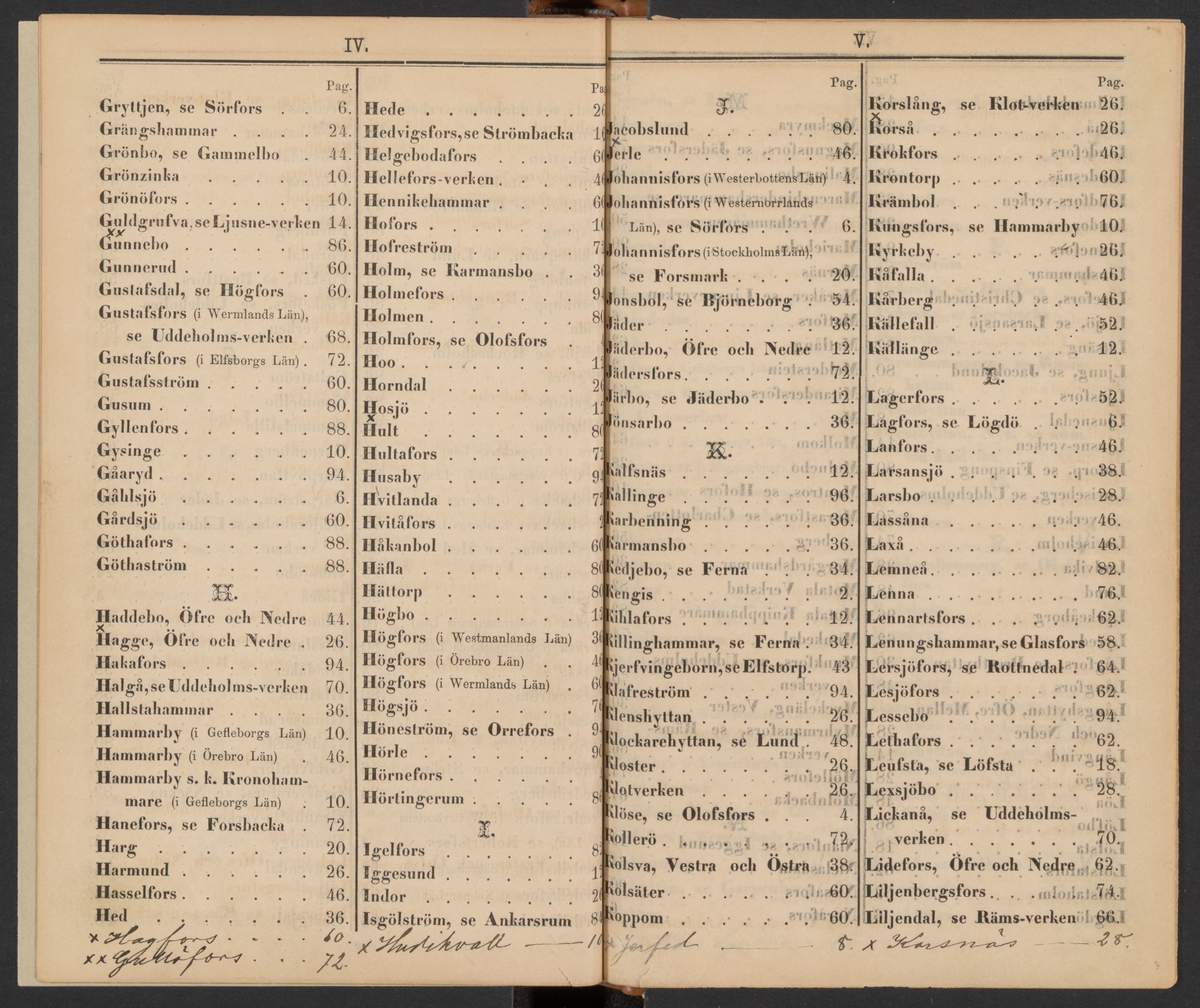 IV.
Pag.
Gryttjen, se Sörfors . . 6.
Grängshammar . . . . 24.
Grönbo, se Gammelbo . 44.
Grönzinka . . . . . 10.
Grönöfors . . . . . 10.
Guldgrufva, se Ljusne-verken 14.
××
Gunnebo . . . . . . 86.
Gunnerud . . . . . . 60.
Gustafsdal, se Högfors . 60.
Gustafsfors (i Wermlands Län),
se Uddeholms-verken . 68.
Gustafsfors (i Elfsborgs Län) . 72.
Gustafsström . . . . . 60.
Gusum . . . . . . . 80.
Gyllenfors . . . . . . 88.
Gysinge . . . . . . 10.
Gåaryd . . . . . . . 94.
Gåhlsjö . . . . . . 6.
Gårdsjö . . . . . . 60.
Göthafors . . . . . . 88.
Göthaström . . . . . 88.
H.
Haddebo, Öfre och Nedre 44.
×
Hagge, Öfre och Nedre . 26.
Hakafors . . . . . . 94.
Halgå, se Uddeholms-verken 70.
Hallstahammar . . . . 36.
Hammarby (i Gefleborgs Län) 10.
Hammarby (i Örebro Län) . 46.
Hammarby s. k. Kronoham-
mare (i Gefleborgs Län) . 10.
Hanefors, se Forsbacka . 72.
Harg . . . . . . . 20.
Harmund . . . . . . 26.
Hasselfors . . . . . . 46.
Hed . . . . . . . 36.
× Hagfors . . . . 60.
×× Gullöfors . . . 72.
Hede . . . . . . .
Hedvigsfors, se Strömbacka
Helgebodafors . . . .
Hellefors-verken . . . .
Hennikehammar . . . .
Hofors . . . . . . .
Hofreström . . . . .
Holm, se Karmansbo . .
Holmefors . . . . . .
Holmen . . . . . . .
Holmfors, se Olofsfors .
Hoo . . . . . . . .
Horndal . . . . . .
Hosjö . . . . . . .
×
Hult . . . . . . .
Hultafors . . . . . .
Husaby . . . . . .
Hvitlanda . . . . . .
Hvitåfors . . . . . .
Håkanbol . . . . . .
Häfla . . . . . . .
Hättorp . . . . . .
Högbo . . . . . . .
Högfors (i Westmanlands Län)
Högfors (i Örebro Län) .
Högfors (i Wermlands Län) .
Högsjö . . . . . . .
Höneström, se Orrefors .
Hörle . . . . . . .
Hörnefors . . . . . .
Hörtingerum . . . . .
I.
Igelfors . . . . . .
Iggesund . . . . . .
Indor . . . . . . .
Isgölström, se Ankarsrum
× Hudikvall —
V.
Pag.
J.
Jacobslund . . . . . . 80.
×
Jerle . . . . . . . 46.
Johannisfors (i Westerbottens Län) 4.
Johannisfors (i Westernorrlands
Län), se Sörfors . . . 6.
Johannisfors (i Stockholms Län),
se Forsmark . . . . 20.
Jonsbol, se Björneborg . 54.
Jäder . . . . . . . 36.
Jäderbo, Öfre och Nedre 12.
Jädersfors . . . . . . 72.
Järbo, se Jäderbo . . . 12.
Jönsarbo . . . . . . 36.
K.
Kalfsnäs . . . . . . 12.
Kallinge . . . . . . 96.
Karbenning . . . . . 36.
Karmansbo . . . . . 36.
Kedjebo, se Ferna . . . 34.
Kengis . . . . . . . 2.
Kihlafors . . . . . . 12.
Killinghammar, se Ferna . 34.
Kjerfvingeborn, se Elfstorp. 43
Klafreström . . . . . 94.
Klenshyttan . . . . . 26.
Klockarehyttan, se Lund . 48.
Kloster . . . . . . . 26.
Klotverken . . . . . 26.
Klöse, se Olofsfors . . . 4.
Kollerö . . . . . . . 72.
Kolsva, Vestra och Östra 38.
Kolsäter . . . . . . 60.
Koppom . . . . . . 60.
× Jerfed — 8.
Pag.
Korslång, se Klot-verken 26.
×
Korså . . . . . . . 26.
Krokfors . . . . . . 46.
Krontorp . . . . . . 60.
Krämbol . . . . . . 76.
Kungsfors, se Hammarby 10.
Kyrkeby . . . . . . 26.
Kåfalla . . . . . . . 46.
Kårberg . . . . . . 46.
Källefall . . . . . . 52.
Källänge . . . . . . 12.
L.
Lagerfors . . . . . . 52.
Lagfors, se Lögdö . . . 6.
Lanfors . . . . . . . 46.
Larsansjö . . . . . . 38.
Larsbo . . . . . . . 28.
Lassåna . . . . . . 46.
Laxå . . . . . . . 46.
Lemneå . . . . . . . 82.
Lenna . . . . . . . 76.
Lennartsfors . . . . . 62.
Lenungshammar, se Glasfors 58.
Lersjöfors, se Rottnedal . 64.
Lesjöfors . . . . . . 62.
Lessebo . . . . . . 94.
Lethafors . . . . . . 62.
Leufsta, se Löfsta . . . 18.
Lexsjöbo . . . . . . 28.
Lickanå, se Uddeholms-
verken . . . . . . 70.
Lidefors, Öfre och Nedre 62.
Liljenbergsfors . . . . 74.
Liljendal, se Räms-verken 66.
× Korsnäs — 28.